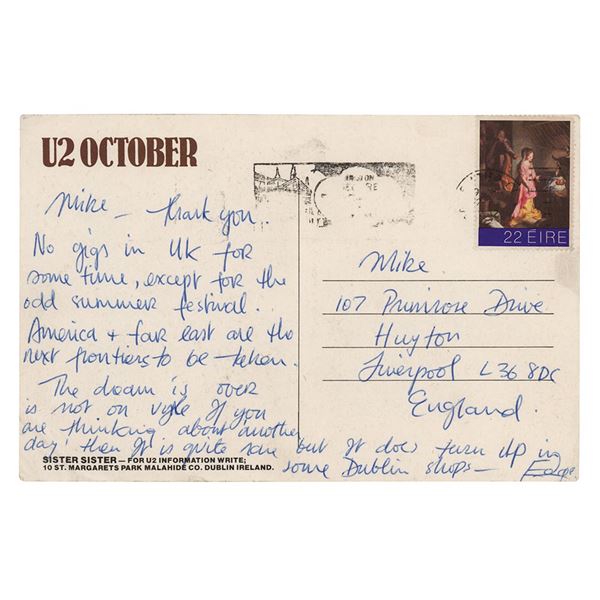 U2 OCTOBER
Mike - thank you.
No gigs in UK for
some time, except for the
odd summer festival.
America + far east are the
next frontiers to be taken.
The dream is over
is not on If you
are thinking about another
day' then It is quite rare but It does turn up in
some Dublin shops - Edge
SISTER SISTER — FOR U2 INFORMATION WRITE;
10 ST. MARGARETS PARK MALAHIDE CO. DUBLIN IRELAND.
22 EIRE
Mike
107 Primrose Drive
Huyton
Liverpool L36 8DC
England.